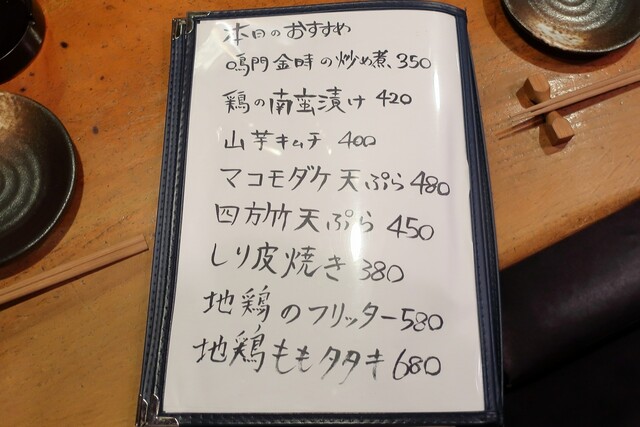 本日のおすすめ
鳴門金時の炒め煮 350
鶏の南蛮漬け 420
山芋キムチ 400
マコモダケ天ぷら 480
四方竹天ぷら 450
しり皮焼き 380
地鶏のフリッター 580
地鶏ももタタキ 680